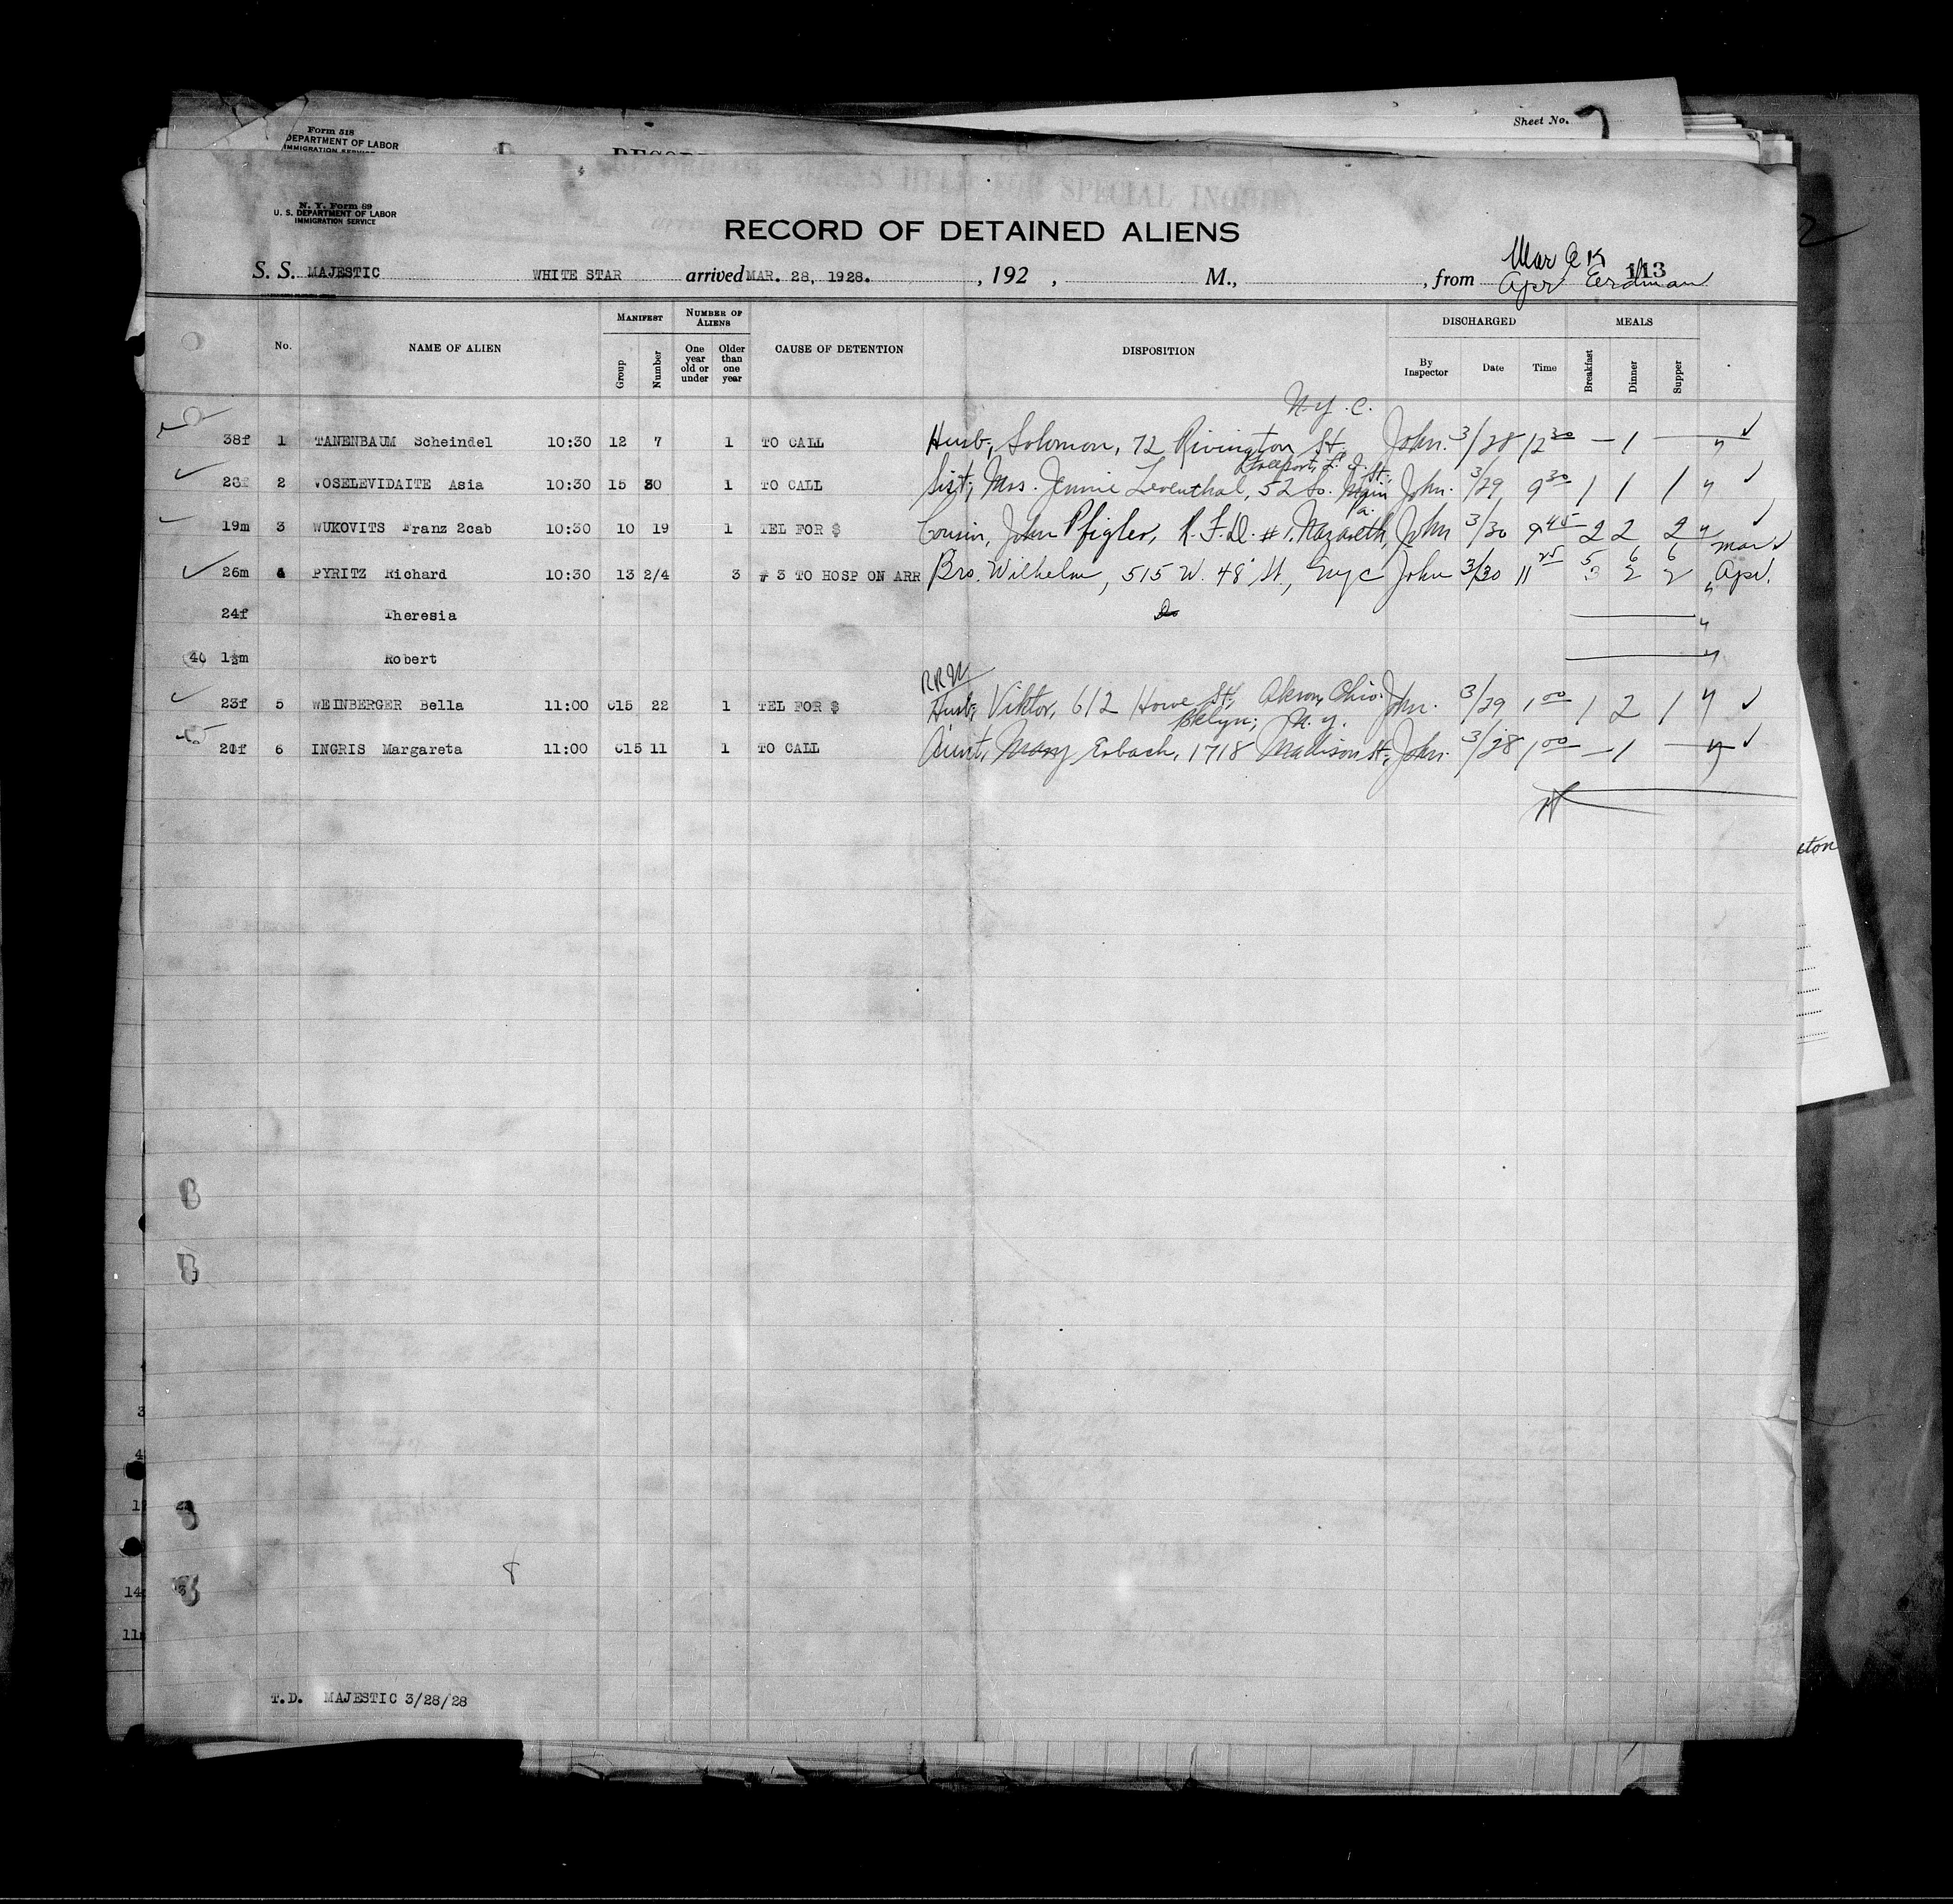 Form 518
DEPARTMENT OF LABOR
IMMIGRATION SERVICE
Sheet No. 7
N. Y. Form 89
U. S. DEPARTMENT OF LABOR
IMMIGRATION SERVICE
HELD FOR SPECIAL INQUIRY
RECORD OF DETAINED ALIENS
Mar OK 113
S. S. MAJESTIC WHITE STAR arrived MAR. 28, 1928. , 192 , M., , from Apr Erdman
No. NAME OF ALIEN MANIFEST Group Number NUMBER OF ALIENS One year old or under Older than one year CAUSE OF DETENTION DISPOSITION DISCHARGED By Inspector Date Time MEALS Breakfast Dinner Supper
N.Y.C.
38f 1 TANENBAUM Scheindel 10:30 12 7 1 TO CALL Husb, Solomon, 72 Rivington St. John. 3/28 12 30 — 1 — "
Freeport, L. I.
2 VOSELEVIDAITE Asia 10:30 15 30 1 TO CALL Sist, Mrs. Jennie Leventhal, 52 So. Main St., John. 3/29 9 30 1 1 1 "
Pa.
19m 3 WUKOVITS Franz 2cab 10:30 10 19 1 TEL FOR $ Cousin, John Pfigler, R.F.D. #1. Nazareth, John 3/30 9 45 2 2 2 "
5 6 6 Mar
26m 4 PYRITZ Richard 10:30 13 2/4 3 # 3 TO HOSP ON ARR Bro. Wilhelm, 515 W. 48 St, NYC John 3/30 11 25 3 2 2 " Apr.
24f Theresia Do "
40 1½m Robert "
RRN
23f 5 WEINBERGER Bella 11:00 C15 22 1 TEL FOR $ Husb, Viktor, 612 Howe St, Akron, Ohio. John. 3/29 1 00 1 2 1 "
Bklyn, N.Y.
6 INGRIS Margareta 11:00 C15 11 1 TO CALL Aunt, Mary Erbach, 1718 Madison St, John. 3/28 1 00 — 1 — "
ston
T.D. MAJESTIC 3/28/28